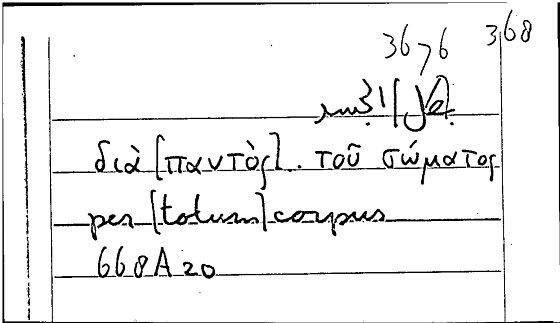 3676 368
διὰ [παντὸς] .. τοῦ σώματος
per [totum] corpus
668A20